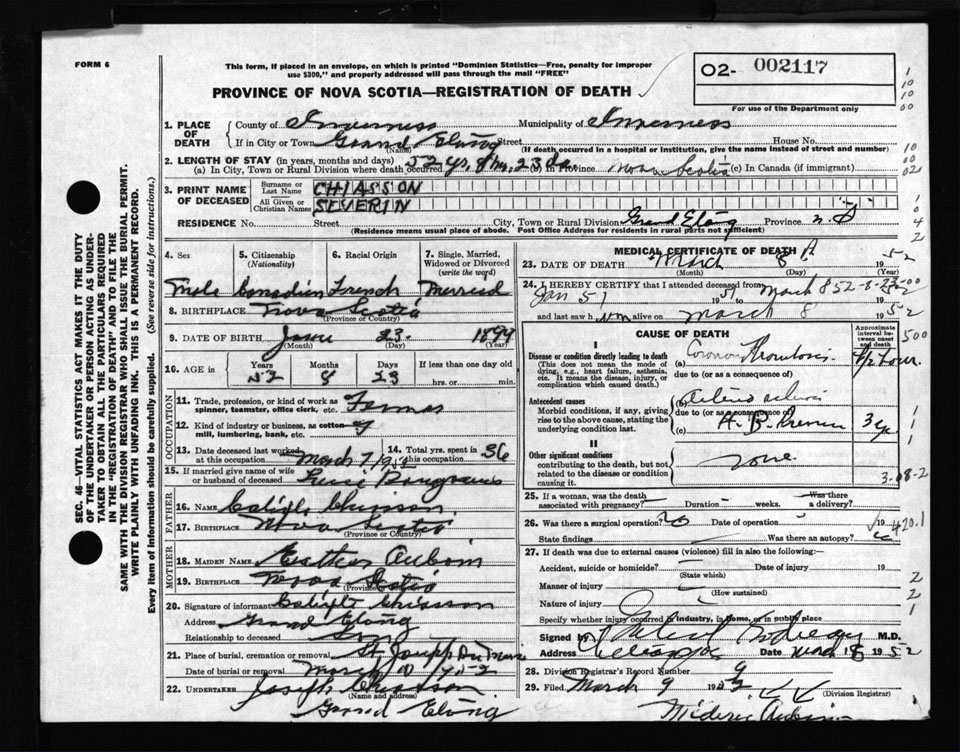 FORM 6
This form, if placed in an envelope, on which is printed "Dominion Statistics—Free, penalty for improper
use $300," and properly addressed will pass through the mail "FREE"
PROVINCE OF NOVA SCOTIA—REGISTRATION OF DEATH
02- 002117
For use of the Department only
1. PLACE OF DEATH
County of Inverness Municipality of Inverness
If in City or Town Grand Etang Street House No.
(Name) (If death occurred in a hospital or institution, give the name instead of street and number)
2. LENGTH OF STAY (in years, months and days)
(a) In City, Town or Rural Division where death occurred 52 yrs, 8 m, 23 da (b) In Province Nova Scotia (c) In Canada (if immigrant)
3. PRINT NAME OF DECEASED
Surname or Last Name CHIASSON
All Given or Christian Names SEVERIN
RESIDENCE No. Street City, Town or Rural Division Grand Etang Province N.S
(Residence means usual place of abode. Post Office Address for residents in rural parts not sufficient)
4. Sex
Male
5. Citizenship (Nationality)
Canadian
6. Racial Origin
French
7. Single, Married, Widowed or Divorced (write the word)
Married
8. BIRTHPLACE Nova Scotia
(Province or Country)
9. DATE OF BIRTH June 23 1899
(Month) (Day) (Year)
10. AGE in Years Months Days If less than one day old
52 8 23 hrs. or min.
OCCUPATION
11. Trade, profession or kind of work as spinner, teamster, office clerk, etc. Farmer
12. Kind of industry or business, as cotton mill, lumbering, bank, etc.
13. Date deceased last worked at this occupation March 7/
14. Total yrs. spent in this occupation 36
15. If married give name of wife or husband of deceased
FATHER
16. Name Calixte Chiasson
17. Birthplace Nova Scotia
(Province or Country)
MOTHER
18. MAIDEN NAME Esther Aubin
19. BIRTHPLACE Nova Scotia
(Province or Country)
20. Signature of informant Calixte Chiasson
Address Grand Etang
Relationship to deceased Son
21. Place of burial, cremation or removal St Joseph Du Moine
Date of burial or removal March 10
22. UNDERTAKER Joseph Chiasson
(Name and address)
Grand Etang
MEDICAL CERTIFICATE OF DEATH
23. DATE OF DEATH March 8 1952
(Month) (Day) (Year)
24. I HEREBY CERTIFY that I attended deceased from
Jan 51
and last saw him alive on March 8 1952
CAUSE OF DEATH
Approximate interval between onset and death
I
Disease or condition directly leading to death
(This does not mean the mode of dying, e.g., heart failure, asthenia, etc. It means the disease, injury, or complication which caused death.)
(a) Coronary Thrombosis 1/2 hour
due to (or as a consequence of)
Antecedent causes
Morbid conditions, if any, giving rise to the above cause, stating the underlying condition last.
(b)
due to (or as a consequence of)
(c)
II
Other significant conditions
contributing to the death, but not related to the disease or condition causing it.
none
25. If a woman, was the death associated with pregnancy? Duration weeks. Was there a delivery?
26. Was there a surgical operation? no Date of operation 19
State findings Was there an autopsy?
420.1
27. If death was due to external causes (violence) fill in also the following:—
Accident, suicide or homicide? Date of injury 19
(State which)
Manner of injury
(How sustained)
Nature of injury
Specify whether injury occurred in industry, in home, or in public place
Signed by M.D.
Address Date March 8 1952
28. Division Registrar's Record Number 9
29. Filed March 9 1952
(Division Registrar)
Mederic Aubin
SEC. 46—VITAL STATISTICS ACT MAKES IT THE DUTY
OF THE UNDERTAKER OR PERSON ACTING AS UNDER-
TAKER TO OBTAIN ALL THE PARTICULARS REQUIRED
IN THE "REGISTRATION OF DEATH" AND TO FILE THE
SAME WITH THE DIVISION REGISTRAR WHO SHALL ISSUE THE BURIAL PERMIT.
WRITE PLAINLY WITH UNFADING INK. THIS IS A PERMANENT RECORD.
Every item of Information should be carefully supplied. (See reverse side for instructions.)